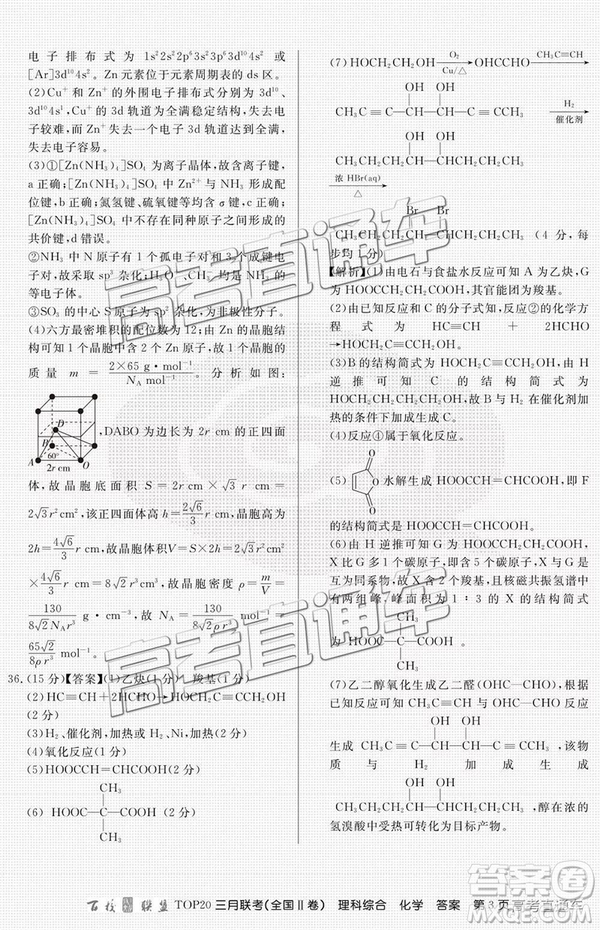 电子排布式为1s²2s²2p⁶3s²3p⁶3d¹⁰4s²或
[Ar]3d¹⁰4s²。Zn元素位于元素周期表的ds区。
(2)Cu⁺和Zn⁺的外围电子排布式分别为3d¹⁰、
3d¹⁰4s¹,Cu⁺的3d轨道为全满稳定结构,失去电
子较难,而Zn⁺失去一个电子后3d轨道为全满,失
去电子容易。
(3)①[Zn(NH₃)₄]SO₄为离子晶体,故含离子键,
a正确;[Zn(NH₃)₄]SO₄中Zn²⁺与NH₃形成配位
键,b正确;氮氢键、硫氧键均含σ键,c正确;
[Zn(NH₃)₄]SO₄中不存在同种原子之间形成的
共价键,d错误。
②NH₃中N原子有1个孤电子对和3个成键电子
子对,故采取sp³杂化;
的等电子体。
③SO₄中S原子为sp³杂化,为非极性分子。
(4)六方最密堆积的配位数为12;由Zn的晶胞结
构可知1个晶胞中含2个Zn原子,Zn的晶胞的
质量 m = 2×65 g·mol⁻¹/N_A mol⁻¹。分析如图:
D
D
B
A
60°
O
2r cm
,DABO为边长为2r cm的正四面
体,故晶胞底面积S=2r cm×√3r cm=
2√3r² cm²,该正四面体高为2√6/3 r cm,晶胞高为
2h=4√6/3 r cm,故晶胞体积V=S×2h=2√3r²
×4√6/3 r cm³=8√2r³ cm³,故晶胞密度ρ=m/V=
130/8√2N_A r³ g·cm⁻³,故 N_A = 130/8√2ρr³ mol⁻¹ =
65√2/8ρr³ mol⁻¹。
36.(15分)【答案】(1)乙炔(1分) 羧基(1分)
(2)HC≡CH+2HCHO→HOCH₂C≡CCH₂OH
(2分)
(3)H₂、催化剂,加热或H₂、Ni,加热(2分)
(4)氧化反应(2分)
(5)HOOCCH=CHCOOH(2分)
CH₃
(6) HOOC—C—COOH(2分)
CH₃
(7) HOCH₂CH₂OH O₂ Cu/△ OHCCHO CH₃C≡CH
OH OH
CH₃C≡C—CH—CH—C≡CCH₃ H₂ 催化剂
OH OH
CH₃CH₂CH₂CHCHCH₂CH₂CH₃
浓HBr(aq) △
Br Br
CH₃CH₂CH₂CHCHCH₂CH₂CH₃ (4分,每
步均1分)
【解析】(1)由电石与食盐水反应可知A为乙炔,由
G为HOOCCH₂CH₂COOH,其官能团为羧基。
(2)由已知反应和C的分子式知,反应②的化学方
程式为HC≡CH+2HCHO
→HOCH₂C≡CCH₂OH。
(3)B的结构简式为HOCH₂C≡CCH₂OH,由H
逆推可知D的结构简式为
HOCH₂CH₂CH₂CH₂OH,B与H₂在催化剂和加
热的条件下加成生成C。
(4)反应④属于氧化反应。
(5) O O O 水解生成HOOCCH=CHCOOH,即F
的结构简式为HOOCCH=CHCOOH。
(6)由H逆推可知G为HOOCCH₂CH₂COOH,
X比G多1个碳原子,即含5个碳原子,与G
互为同系物,故X含2个羧基,核磁共振氢谱中
有两组峰,峰面积为1∶3的X的结构简式为
CH₃
HOOC—C—COOH。
CH₃
(7)乙二醇氧化生成乙二醛(OHC—CHO),乙二醛
OH OH
生成CH₃C≡C—CH—CH—C≡CCH₃,该物
质与H₂加成生成
OH OH
CH₃CH₂CH₂CHCHCH₂CH₂CH₃,醇在浓的
氢溴酸中受热可转化为目标产物。
百校联盟 TOP20 三月联考(全国Ⅱ卷) 理科综合 化学 答案 第3页
高考直通车
高考直通车
高考直通车